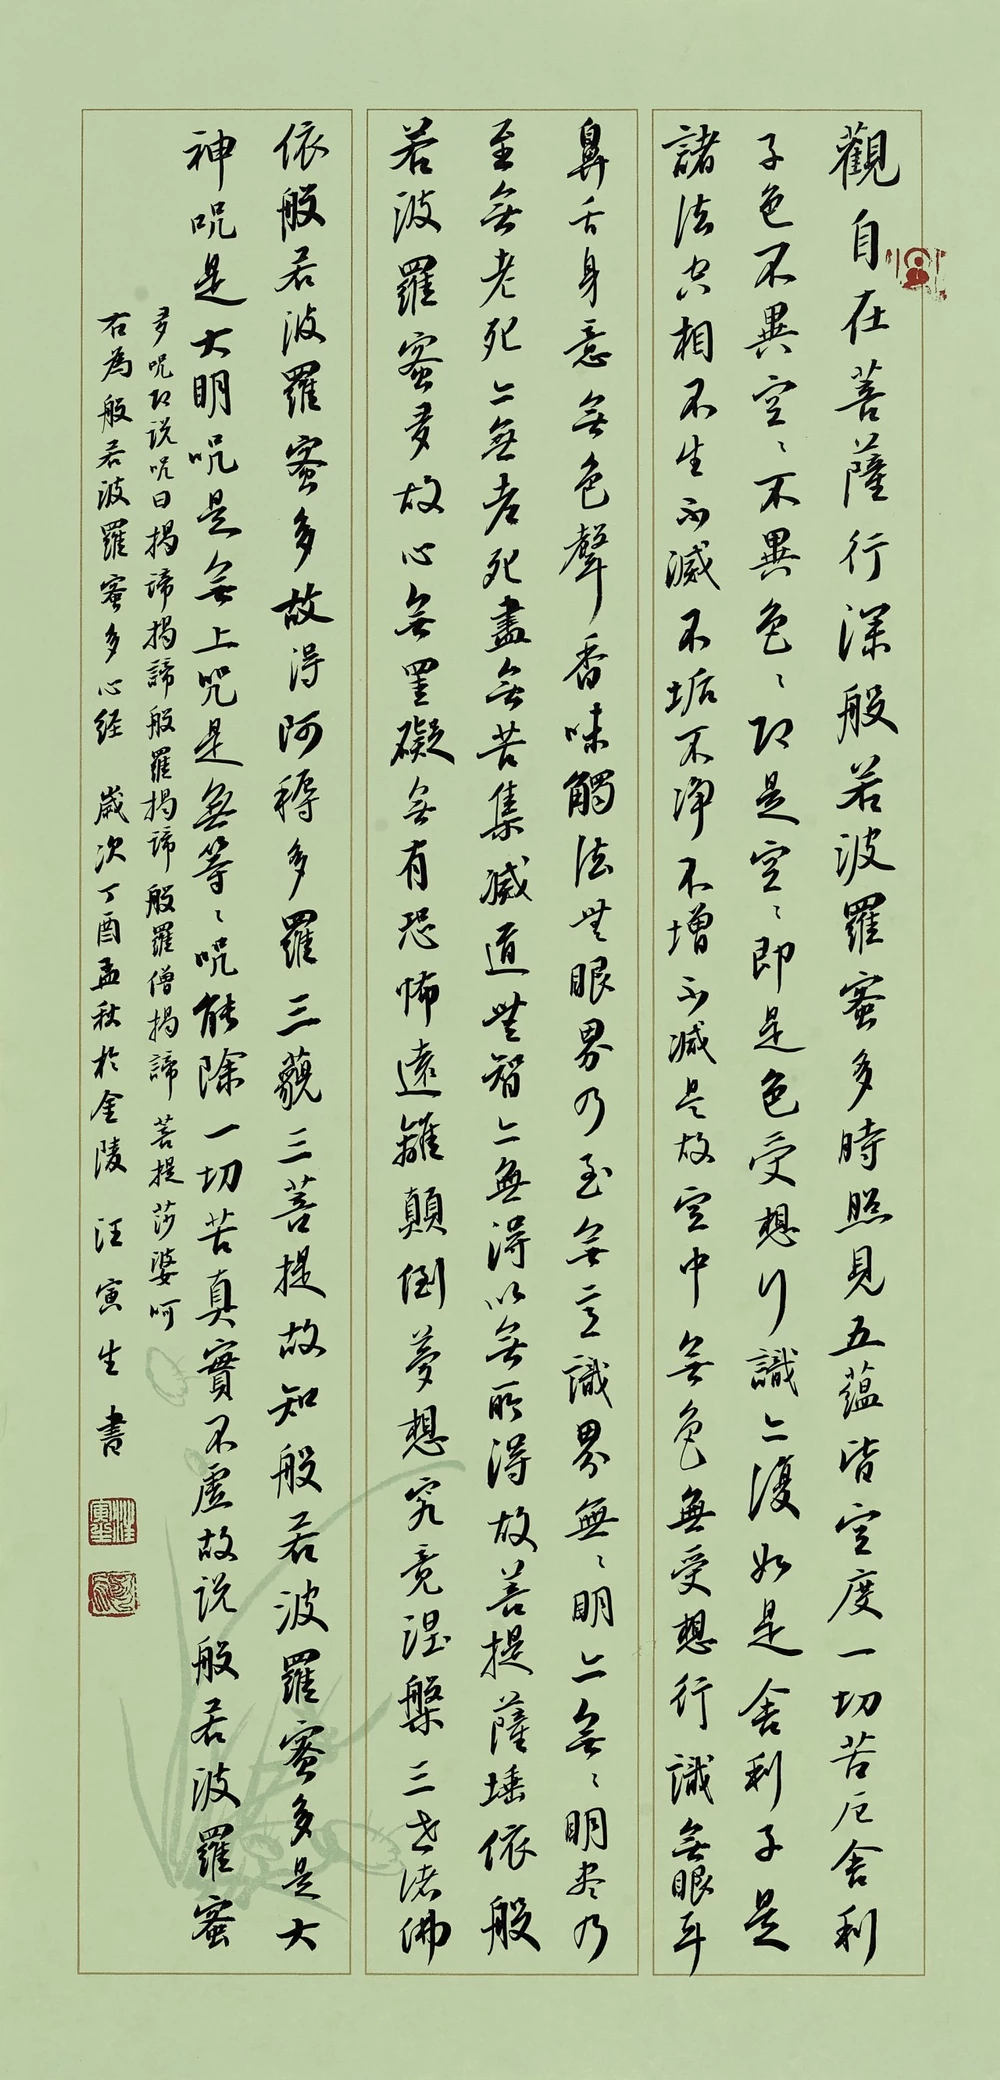 觀自在菩薩行深般若波羅蜜多時照見五蘊皆空度一切苦厄舍利
子色不異空〻不異色〻即是空〻即是色受想行識亦復如是舍利子是
諸法空相不生不滅不垢不淨不增不減是故空中無色無受想行識無眼耳
鼻舌身意無色聲香味觸法無眼界乃至無意識界無〻明亦無〻明尽乃
至無老死亦無老死盡無苦集滅道無智亦無得以無所得故菩提薩埵依般
若波羅蜜多故心無罣礙無有恐怖遠離顛倒夢想究竟涅槃三世诸佛
依般若波羅蜜多故得阿耨多羅三藐三菩提故知般若波羅蜜多是大
神呪是大明呪是無上咒是無等〻呪能除一切苦真實不虛故说般若波羅蜜
多呪即说呪曰揭諦揭諦般羅揭諦般羅僧揭諦菩提莎婆呵
右為般若波羅蜜多心经 歲次丁酉孟秋於金陵 汪寅生書